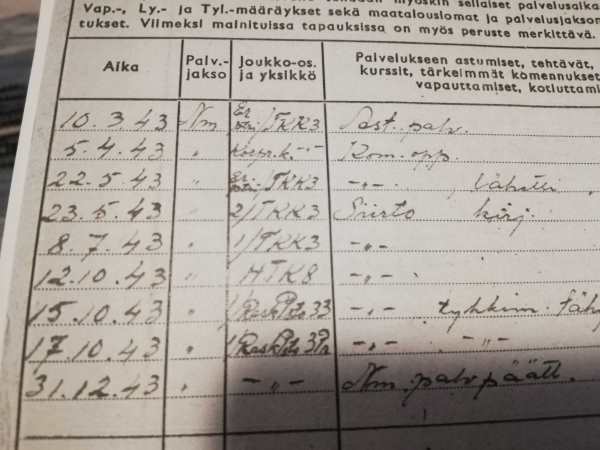 myöskin sellaiset palvelusaika
Vap.-, Ly.- ja Tyl.-määräykset sekä maatalouslomat ja palvelusjakson
tukset. Viimeksi mainituissa tapauksissa on myös peruste merkittävä.
Aika Palv.-jakso Joukko-os. ja yksikkö Palvelukseen astumiset, tehtävät,
kurssit, tärkeimmät komennukset
vapauttamiset, kotiuttami
10.3.43 Nm Er. /TKK3 Ast. palv.
5.4.43 " -"- Kom. opp.
22.5.43 " Er. /TKK3 -"-
23.5.43 " 2/TKK3 Siirto kirj.
8.7.43 " 1/TKK3 -"-
12.10.43 " HTK8 -"-
15.10.43 " 1/RaskPsto 33 -"- tykkim.
17.10.43 " -"- -"-
31.12.43 " -"- Nm. palv. päätt.